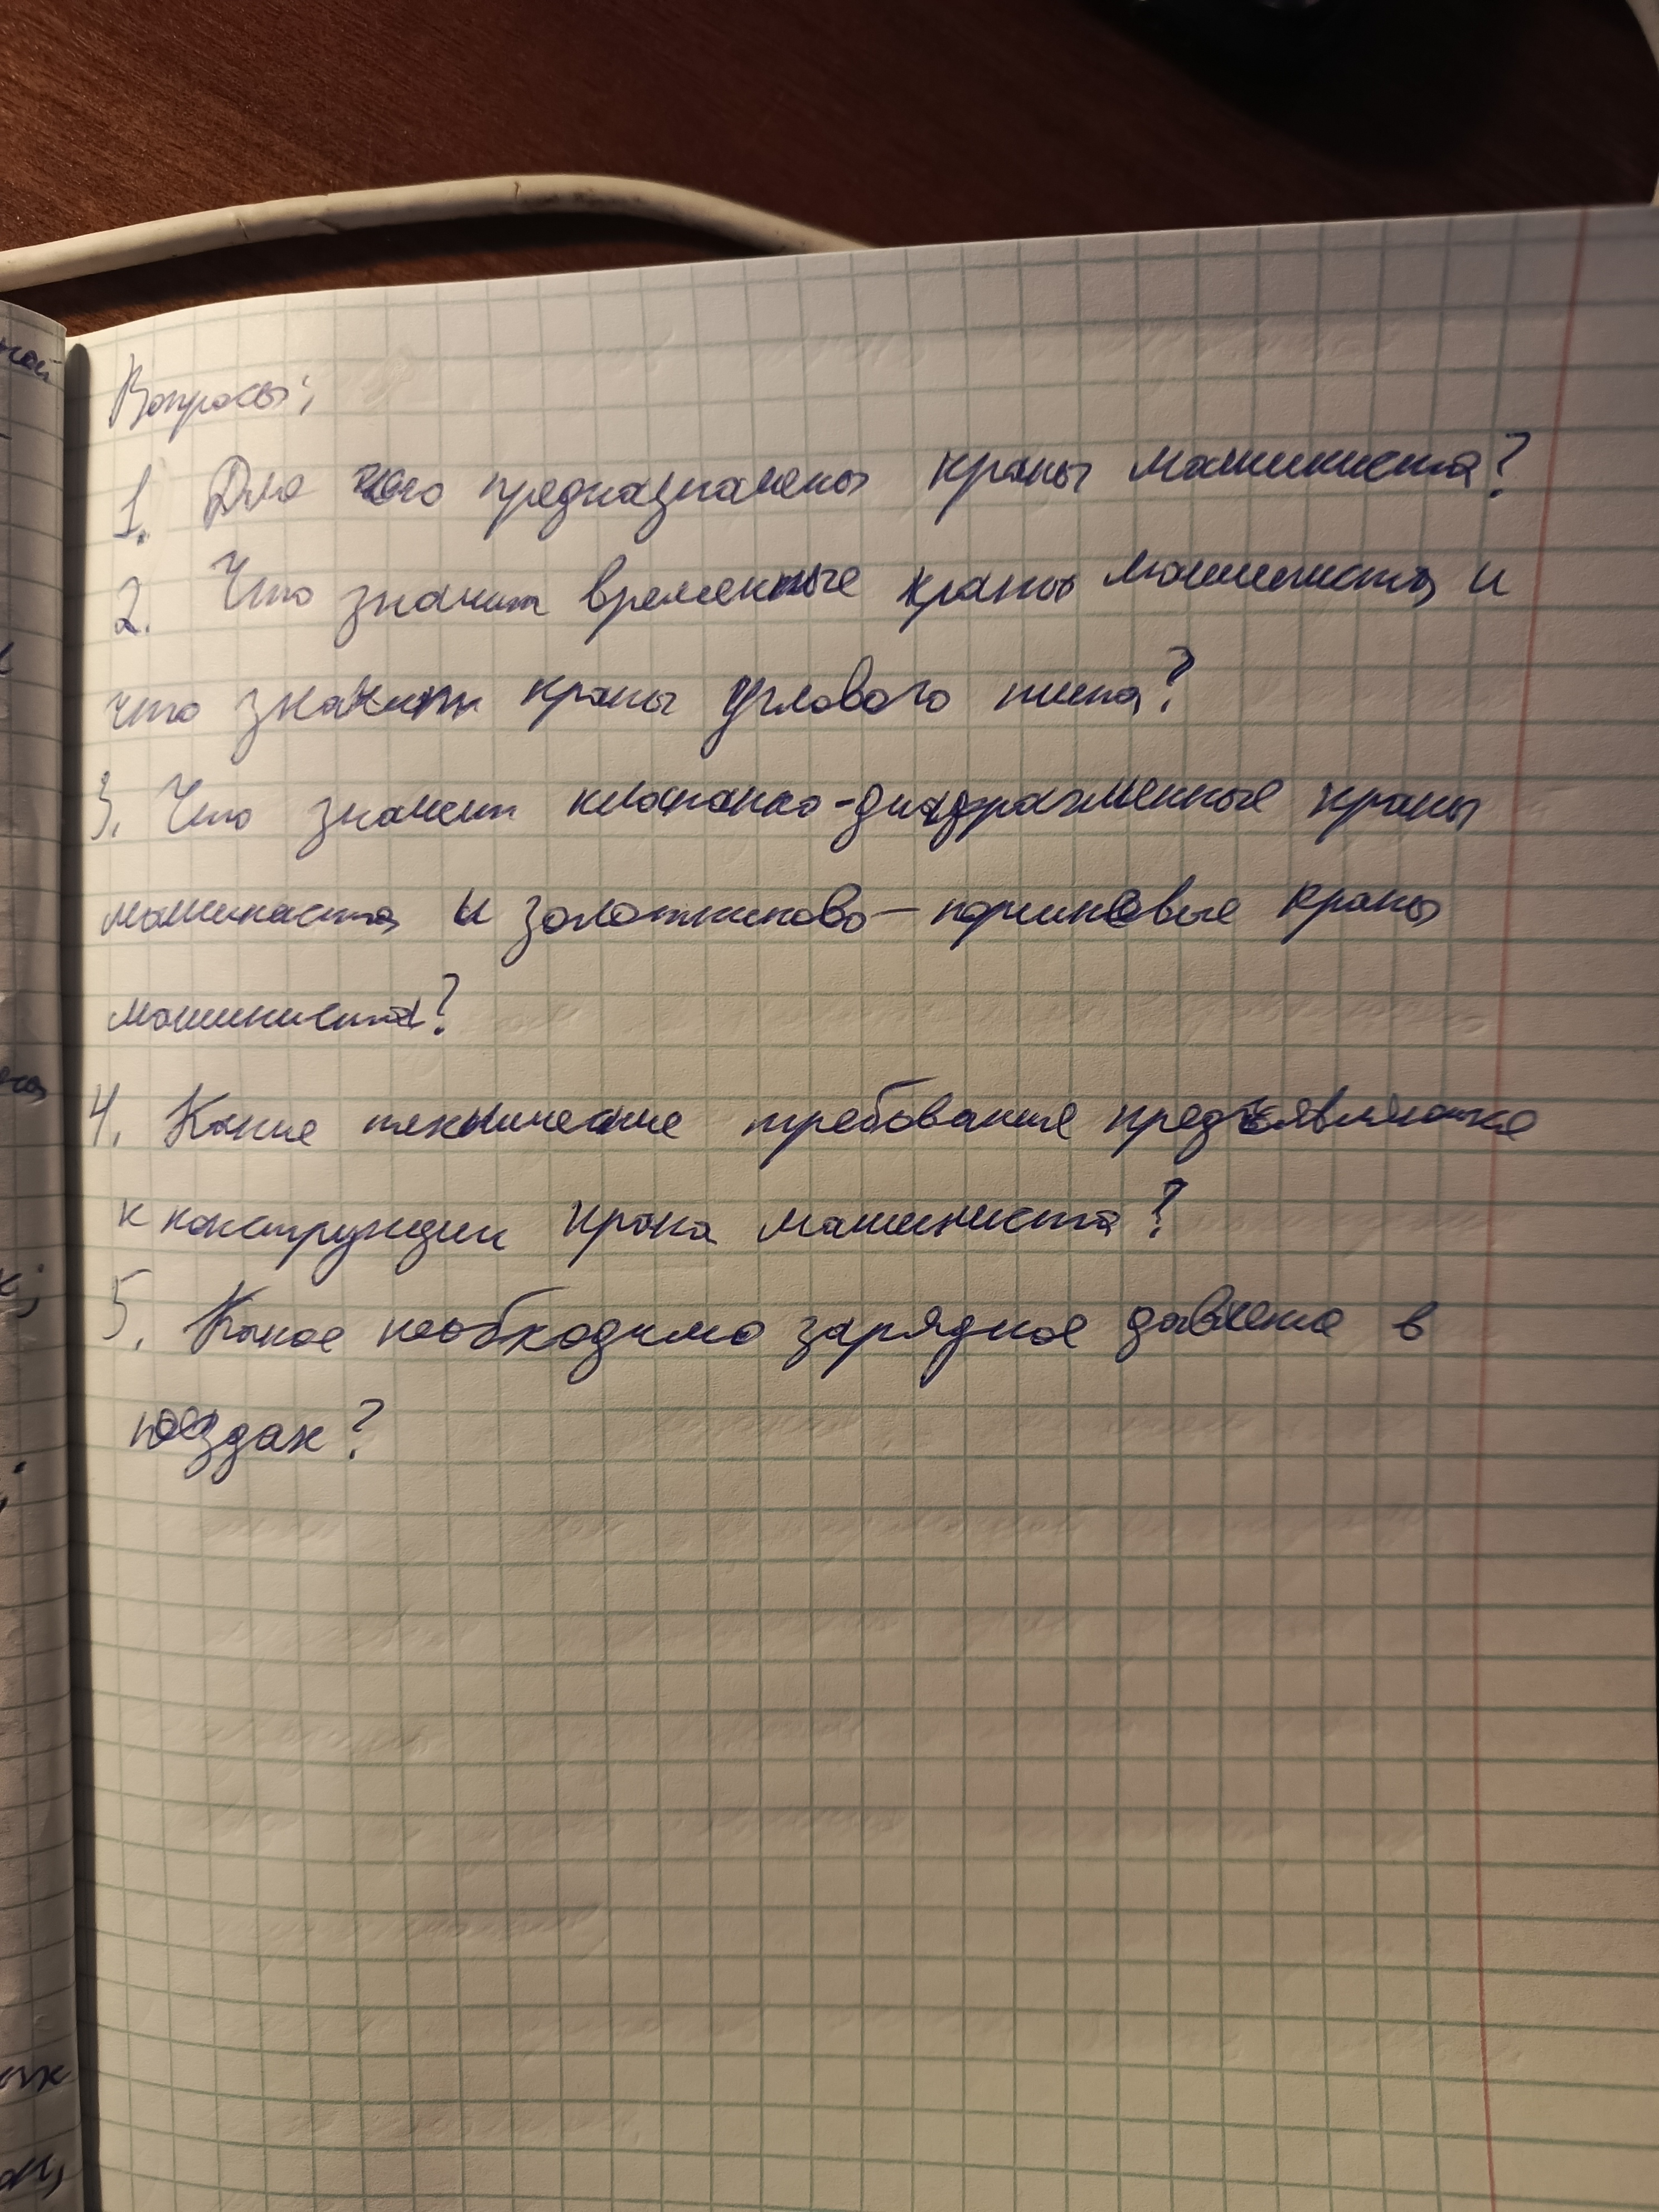 Вопросы:
1. Для чего предназначены краны машиниста?
2. Что значит временные краны машиниста, и
что значит краны углового типа?
3. Что значит клапанно-диафрагменные краны
машиниста и золотниково-поршневые краны
машиниста?
4. Какие технические требования предъявляются
к конструкции крана машиниста?
5. Какое необходимо зарядное давление в
поездах?